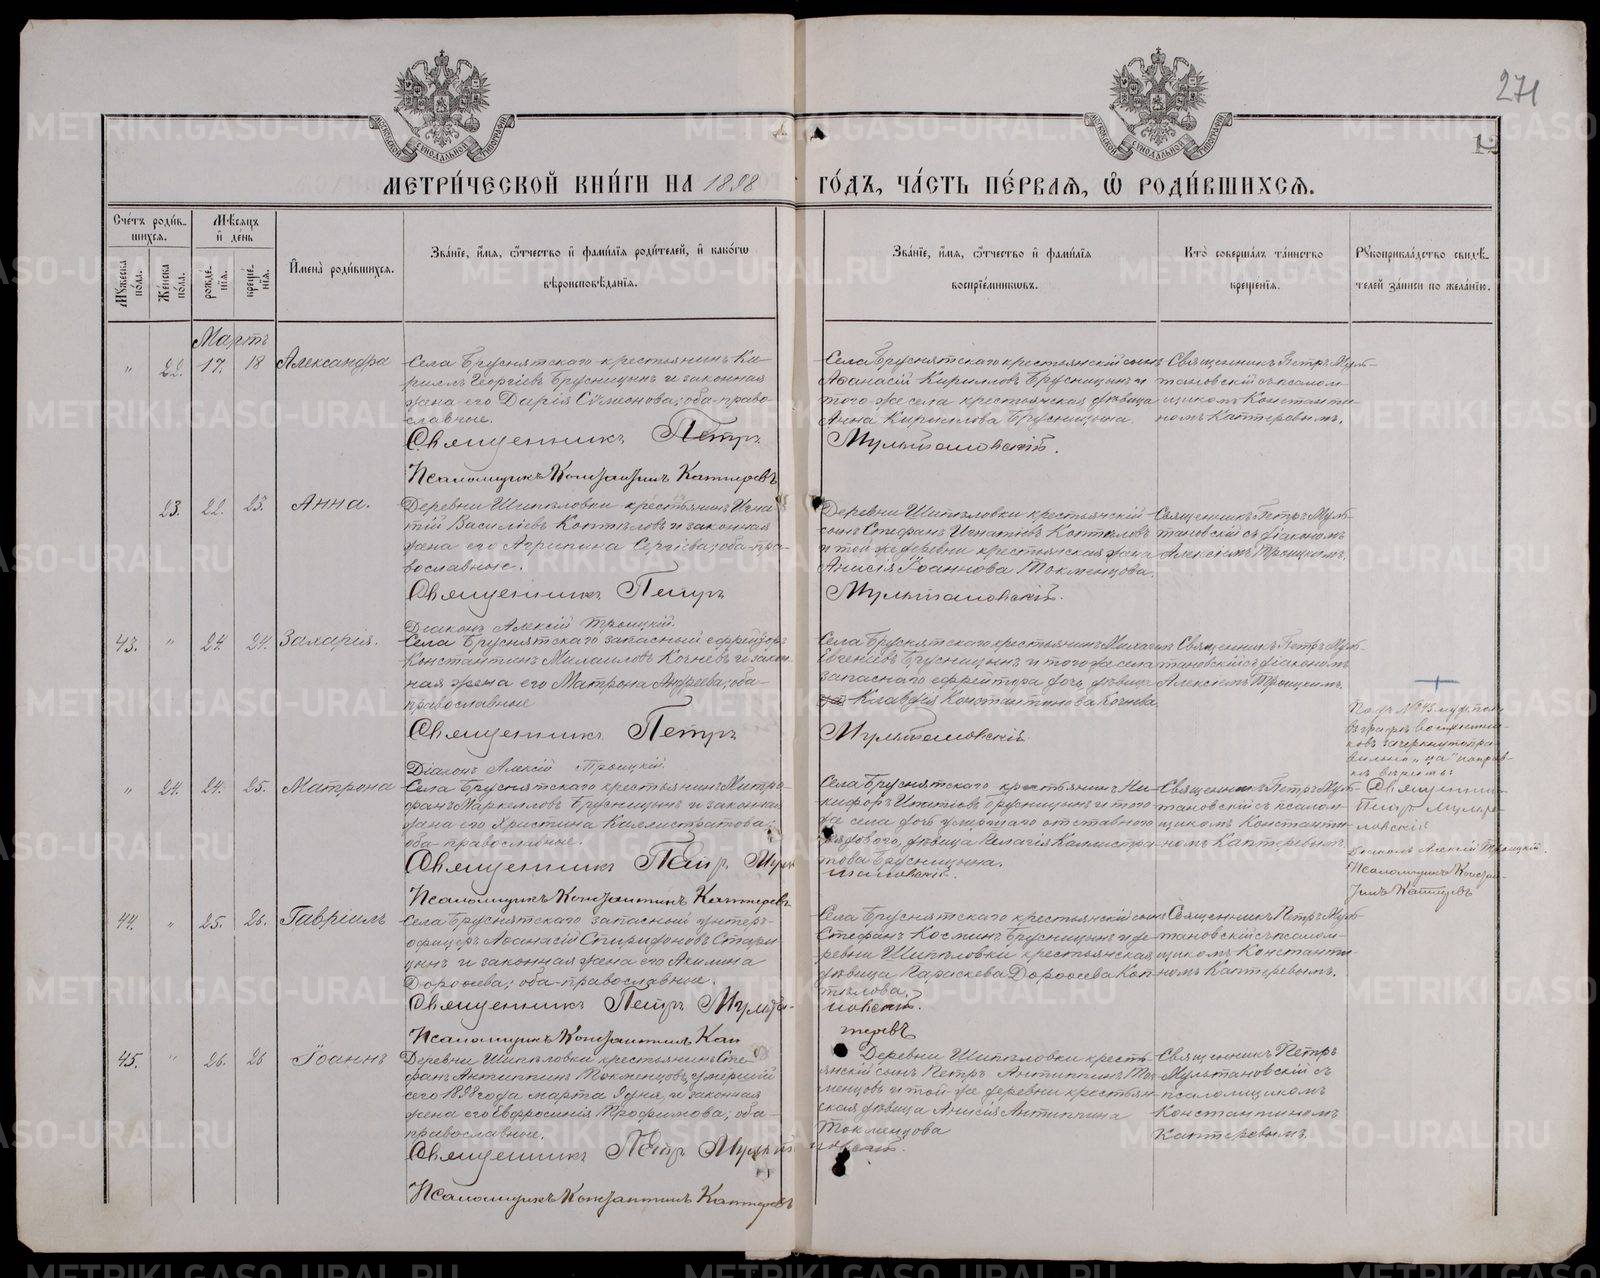 271
12
МЕТРИ́ЧЕСКОЙ КНИ́ГИ НА 1898
ГО́ДЪ, ЧА́СТЬ ПЕ́РВАЯ, Ѿ РОДИ́ВШИХСЯ.
Сче́тъ роди́в-
шихся.
Мѣ́сяцъ
и҆ де́нь
Му́жеска по́ла.
Же́нска по́ла.
рожде́-
нїя.
креще́-
нїя.
И҆мена̀ роди́вшихся.
Зва́нїе, и҆́мя, ѻ҆́тчество и҆ фами́лїя роди́телей, и҆ како́гѡ
вѣроисповѣ́данїя.
Зва́нїе, и҆́мя, ѻ҆́тчество и҆ фами́лїя
воспрїе́мникѡвъ.
Кто̀ соверша́лъ та́инство
креще́нїя.
Рꙋкоприкла́дство свидѣ́-
телей за́писи по жела́нїю.
Мартъ
" 22. 17. 18 Александра
Села Бруснятскаго крестьянинъ Ки-
риллъ Георгіевъ Брусницынъ и законная
жена его Дарія Сѵмеонова; оба право
славные.
Священникъ Петръ
Псаломщикъ Константинъ Каптеревъ
Села Бруснятскаго крестьянскій сынъ
Аѳанасій Кирилловъ Брусницынъ и
того же села крестьянская дѣвица
Анна Кириллова Брусницына.
Мультановскій.
Священникъ Петръ Муль-
тановскій съ псалом-
щикомъ Константи-
номъ Каптеревымъ.
23. 22. 23. Анна.
Деревни Шипѣловки крестьянинъ Игна
тій Василіевъ Коптѣловъ и законная
жена его Агрипина Сергіева; оба пра-
вославные.
Священникъ Петръ
Діаконъ Алексій Троицкій.
Деревни Шипѣловки крестьянскій
сынъ Стефанъ Игнатіевъ Коптѣловъ
и той же деревни крестьянская жена
Анисія Іоаннова Токменцова.
Мультановскій.
Священникъ Петръ Муль-
тановскій съ діакономъ
Алексіемъ Троицкимъ.
43. " 24. 24. Захарія.
Села Бруснятскаго запасный ефрейторъ
Константинъ Михаиловъ Кочневъ и закон-
ная жена его Матрона Андреева; оба-
православные
Священникъ Петръ
Діаконъ Алексій Троицкій.
Села Бруснятскаго крестьянинъ Михаилъ
Евгеніевъ Брусницынъ и того же села
запаснаго ефрейтора дочь дѣвица
Клавдія Константинова Кочнева
Мультановскій.
Священникъ Петръ Муль-
тановскій съ діакономъ
Алексіемъ Троицкимъ.
Подъ №43 муж. пола
въ графѣ воспріемни-
ковъ зачеркнуто пра-
вильно „ца"
Священникъ
Петръ Мульта-
новскій
Діаконъ Алексій Троицкій.
Псаломщикъ Констан-
тинъ Каптеревъ
" 24. 24. 25. Матрона
Села Бруснятскаго крестьянинъ Митро-
фанъ Маркелловъ Брусницынъ и законная
жена его Христина Каллистратова;
оба православные.
Священникъ Петръ Муль
Псаломщикъ Константинъ Каптеревъ
Села Бруснятскаго крестьянинъ Ни-
кифоръ Ипатіевъ Брусницынъ и того
же села дочь умершаго отставнаго
рядового, дѣвица Пелагія Каллистра-
това Брусницына.
тановскій.
Священникъ Петръ Муль-
тановскій съ псалом-
щикомъ Константи-
номъ Каптеревымъ.
44. " 25. 26. Гавріилъ
Села Бруснятскаго запасный унтеръ-
офицеръ Аѳанасій Спиридоновъ Стари-
цынъ и законная жена его Акилина
Дороѳеева; оба православные.
Священникъ Петръ Мульта-
Псаломщикъ Константинъ Кап
Села Бруснятскаго крестьянскій сынъ
Стефанъ Косминъ Брусницынъ и де-
ревни Шипѣловки крестьянская
дѣвица Параскева Дороѳеева Коп-
тѣлова.
новскій.
теревъ
Священникъ Петръ Муль-
тановскій съ псалом-
щикомъ Константи-
номъ Каптеревымъ.
45. " 26. 26 Іоаннъ
Деревни Шипѣловки крестьянинъ Сте-
фанъ Антиппинъ Токменцовъ, умершій
сего 1898 года марта 9 дня, и законная
жена его Евфросинія Трофимова; оба-
православные.
Священникъ Петръ Мульта
Псаломщикъ Константинъ Каптеревъ
Деревни Шипѣловки кресть-
янскій сынъ Петръ Антиппинъ Ток-
менцовъ и той же деревни крестьян-
ская дѣвица Анисія Антиппина
Токменцова
новскій.
Священникъ Петръ
Мультановскій съ
псаломщикомъ
Константиномъ
Каптеревымъ.
METRIKI.GASO-URAL.RU